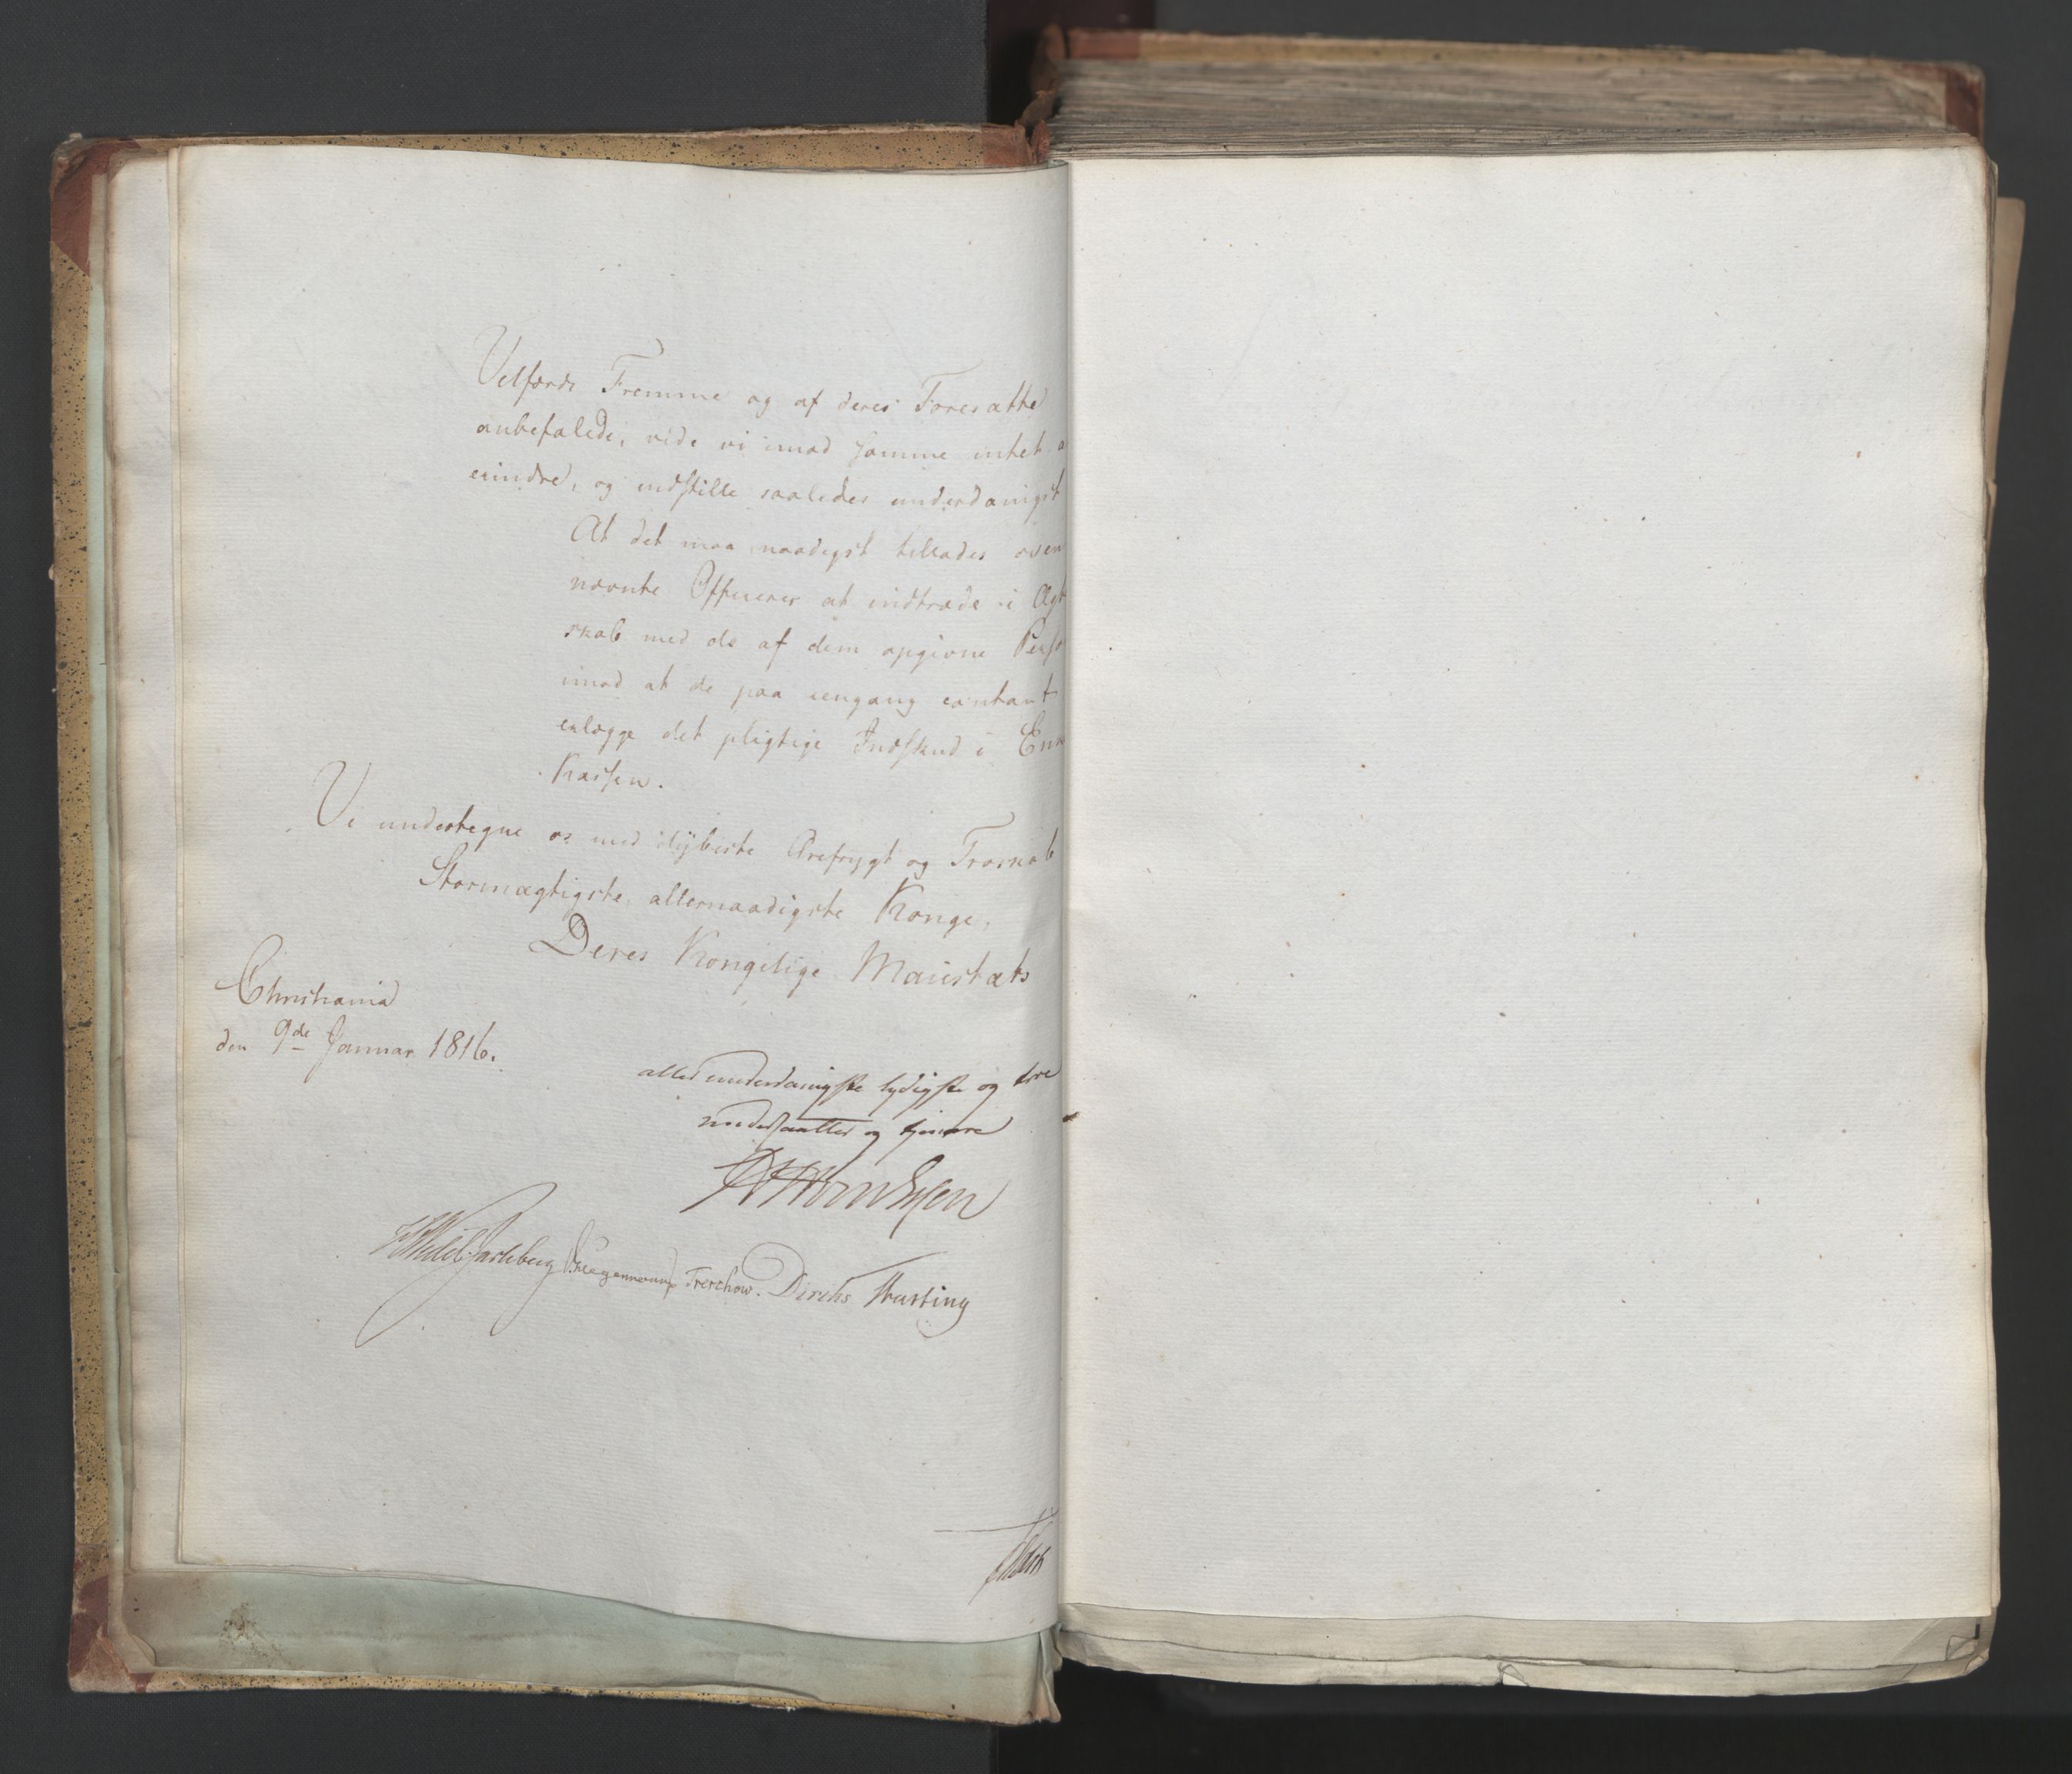 Velfærds Fremme og af deres Foresatte
anbefalede, vide vi imod samme intet a
erindre, og indstille saaledes underdanigst
At det maa naadigst tillades oven
nævnte Officerer at indtræde i Ægt
skab med de af dem opgivne Perso
imod at de paa eengang contant
erlægge det pligtige Indskud i Enke
Kassen.
Vi undertegne os med dybeste Ærefrygt og Troskab
Stormægtigste, allernaadigste Konge,
Deres Kongelige Maiestæts
Christiania
den 9de Januar 1816.
allerunderdanigste lydigste og troe
undersaatter og tjenere
HWedel Jarlsberg Treschow. Diriks Thasting